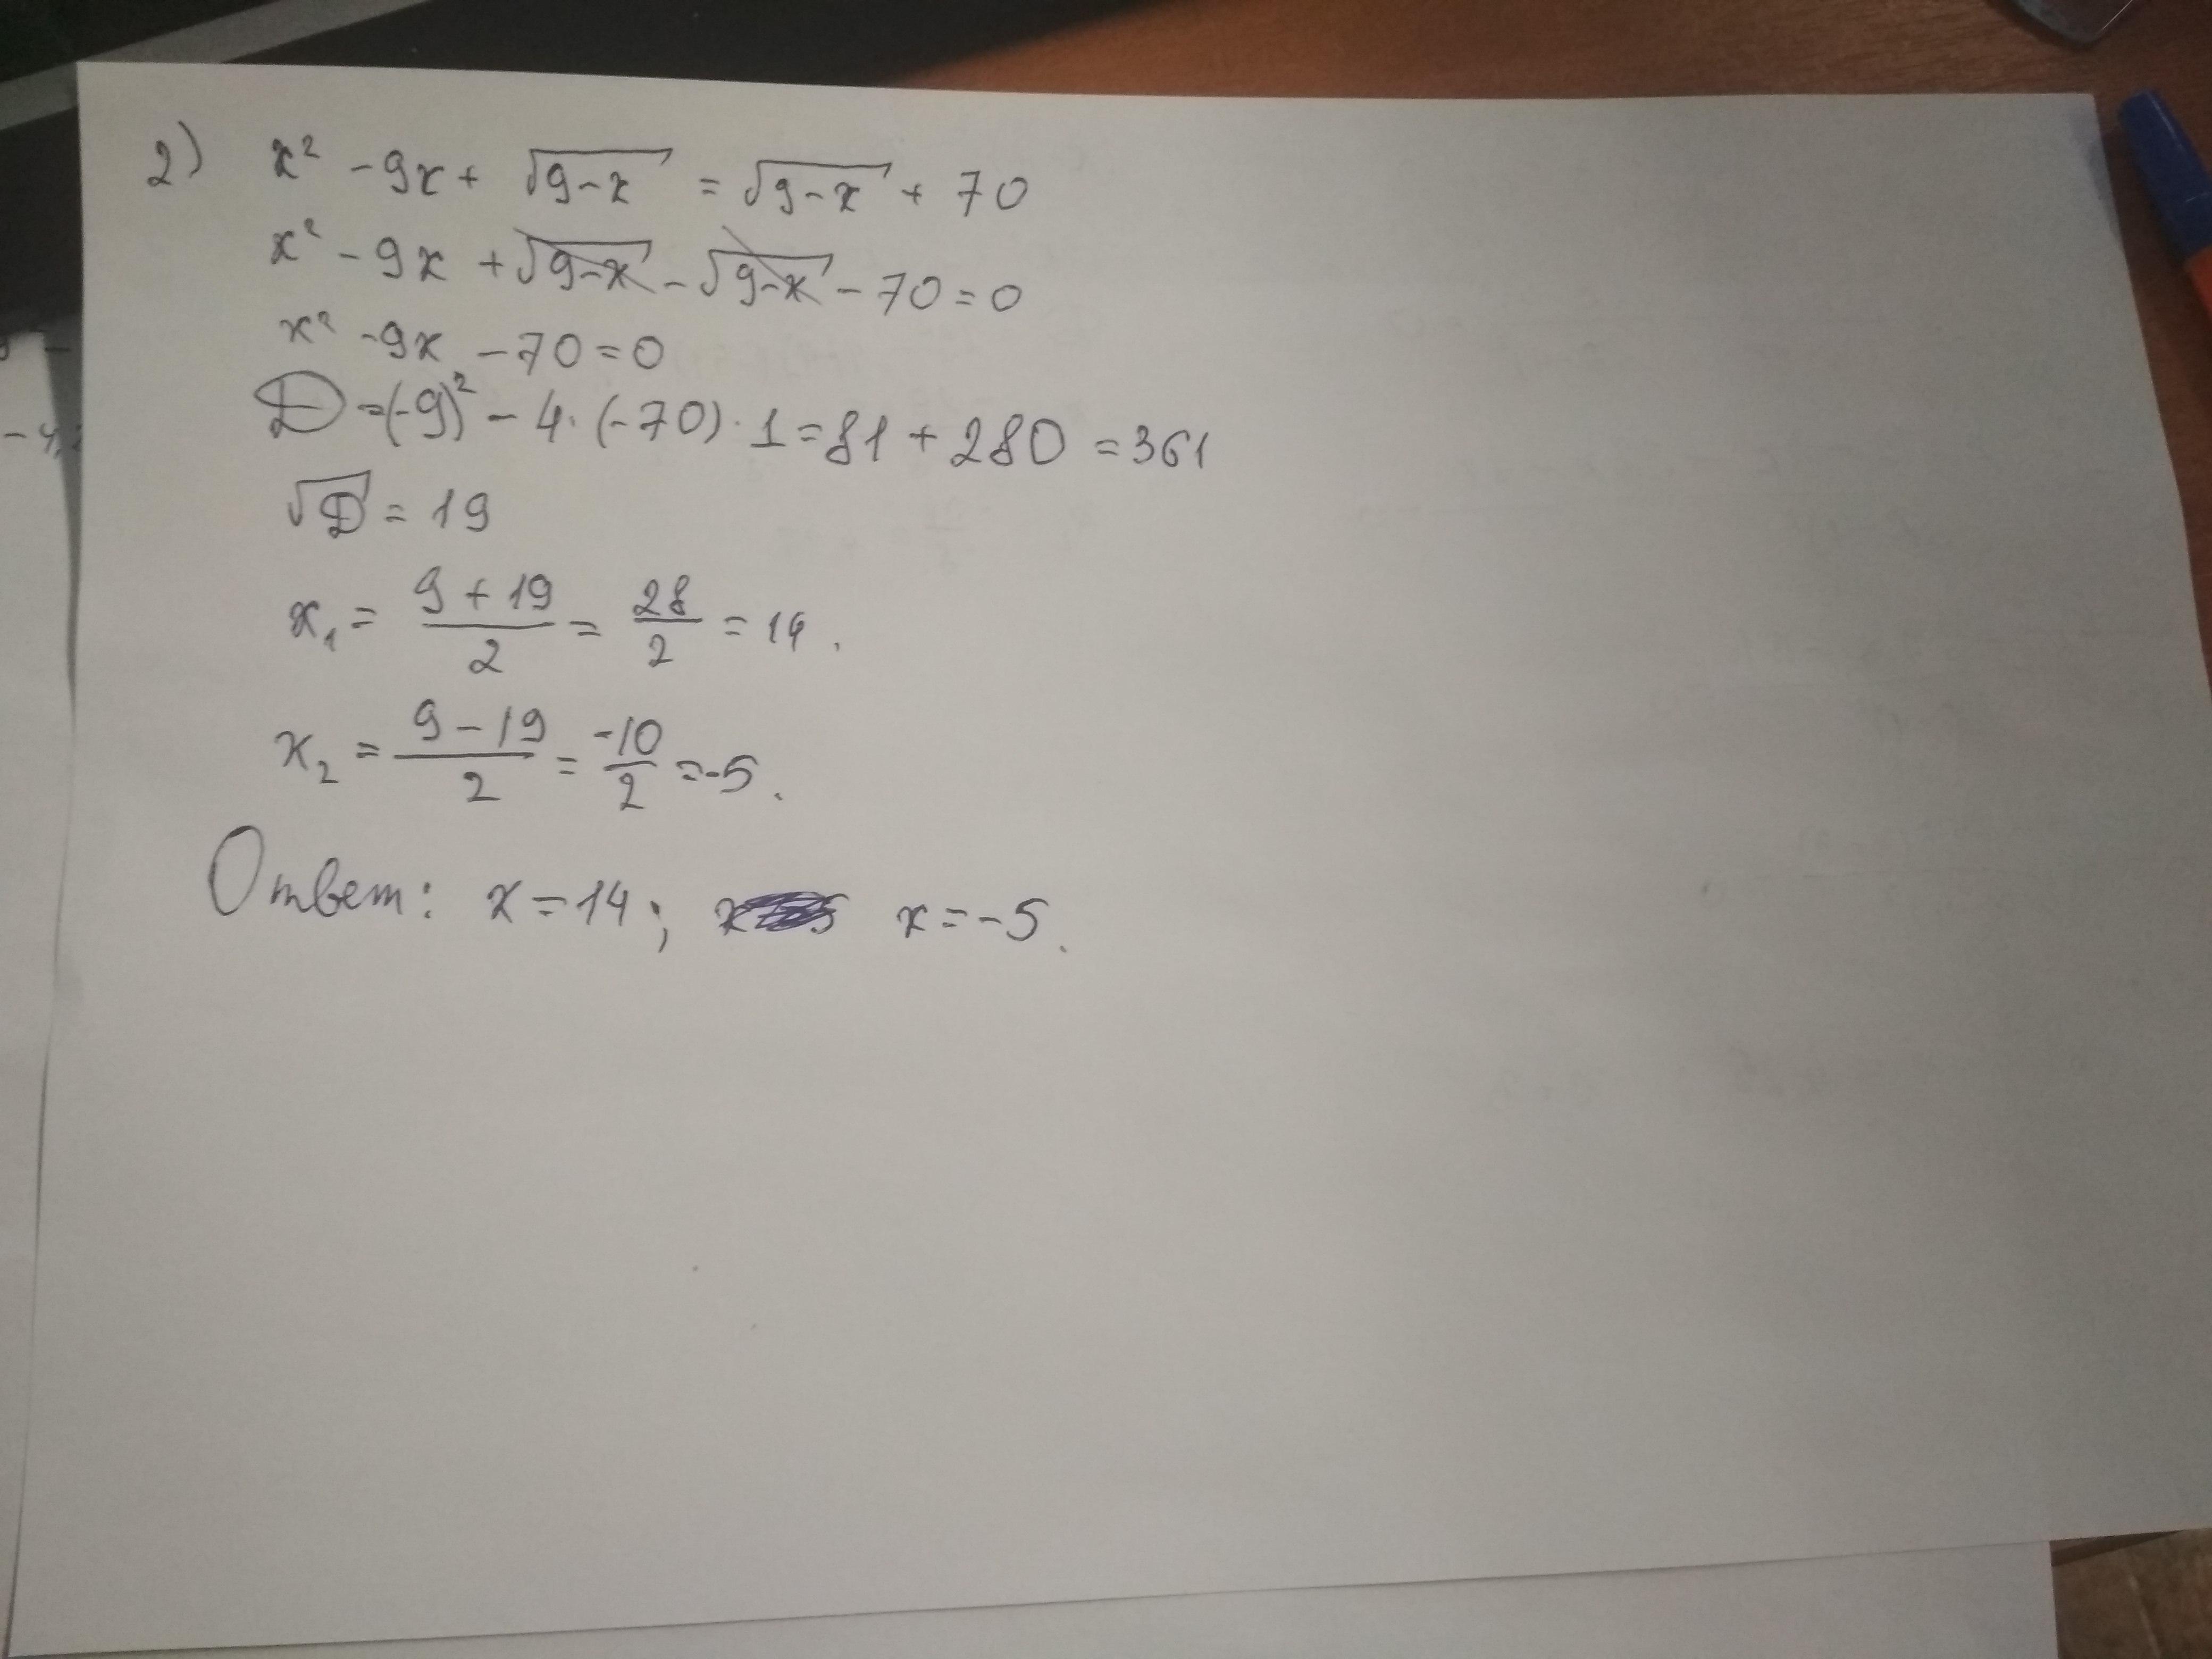 2) x² - 9x + √(9-x) = √(9-x) + 70
x² - 9x + √(9-x) - √(9-x) - 70 = 0
x² - 9x - 70 = 0
D = (-9)² - 4 · (-70) · 1 = 81 + 280 = 361
√D = 19
x₁ = (9 + 19)/2 = 28/2 = 14.
x₂ = (9 - 19)/2 = -10/2 = -5.
Ответ: x = 14; x = -5.